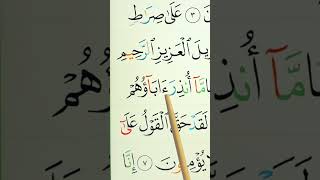 ۣنَ ٣ عَلَىٰ صِرَٰطٍ
يلَ ٱلْعَزِيزِ ٱلرَّحِيمِ
مَّآ أُنذِرَ ءَابَآؤُهُمْ
لَقَدْ حَقَّ ٱلْقَوْلُ عَلَىٰٓ
يُؤْمِنُونَ ٧ إِنَّا